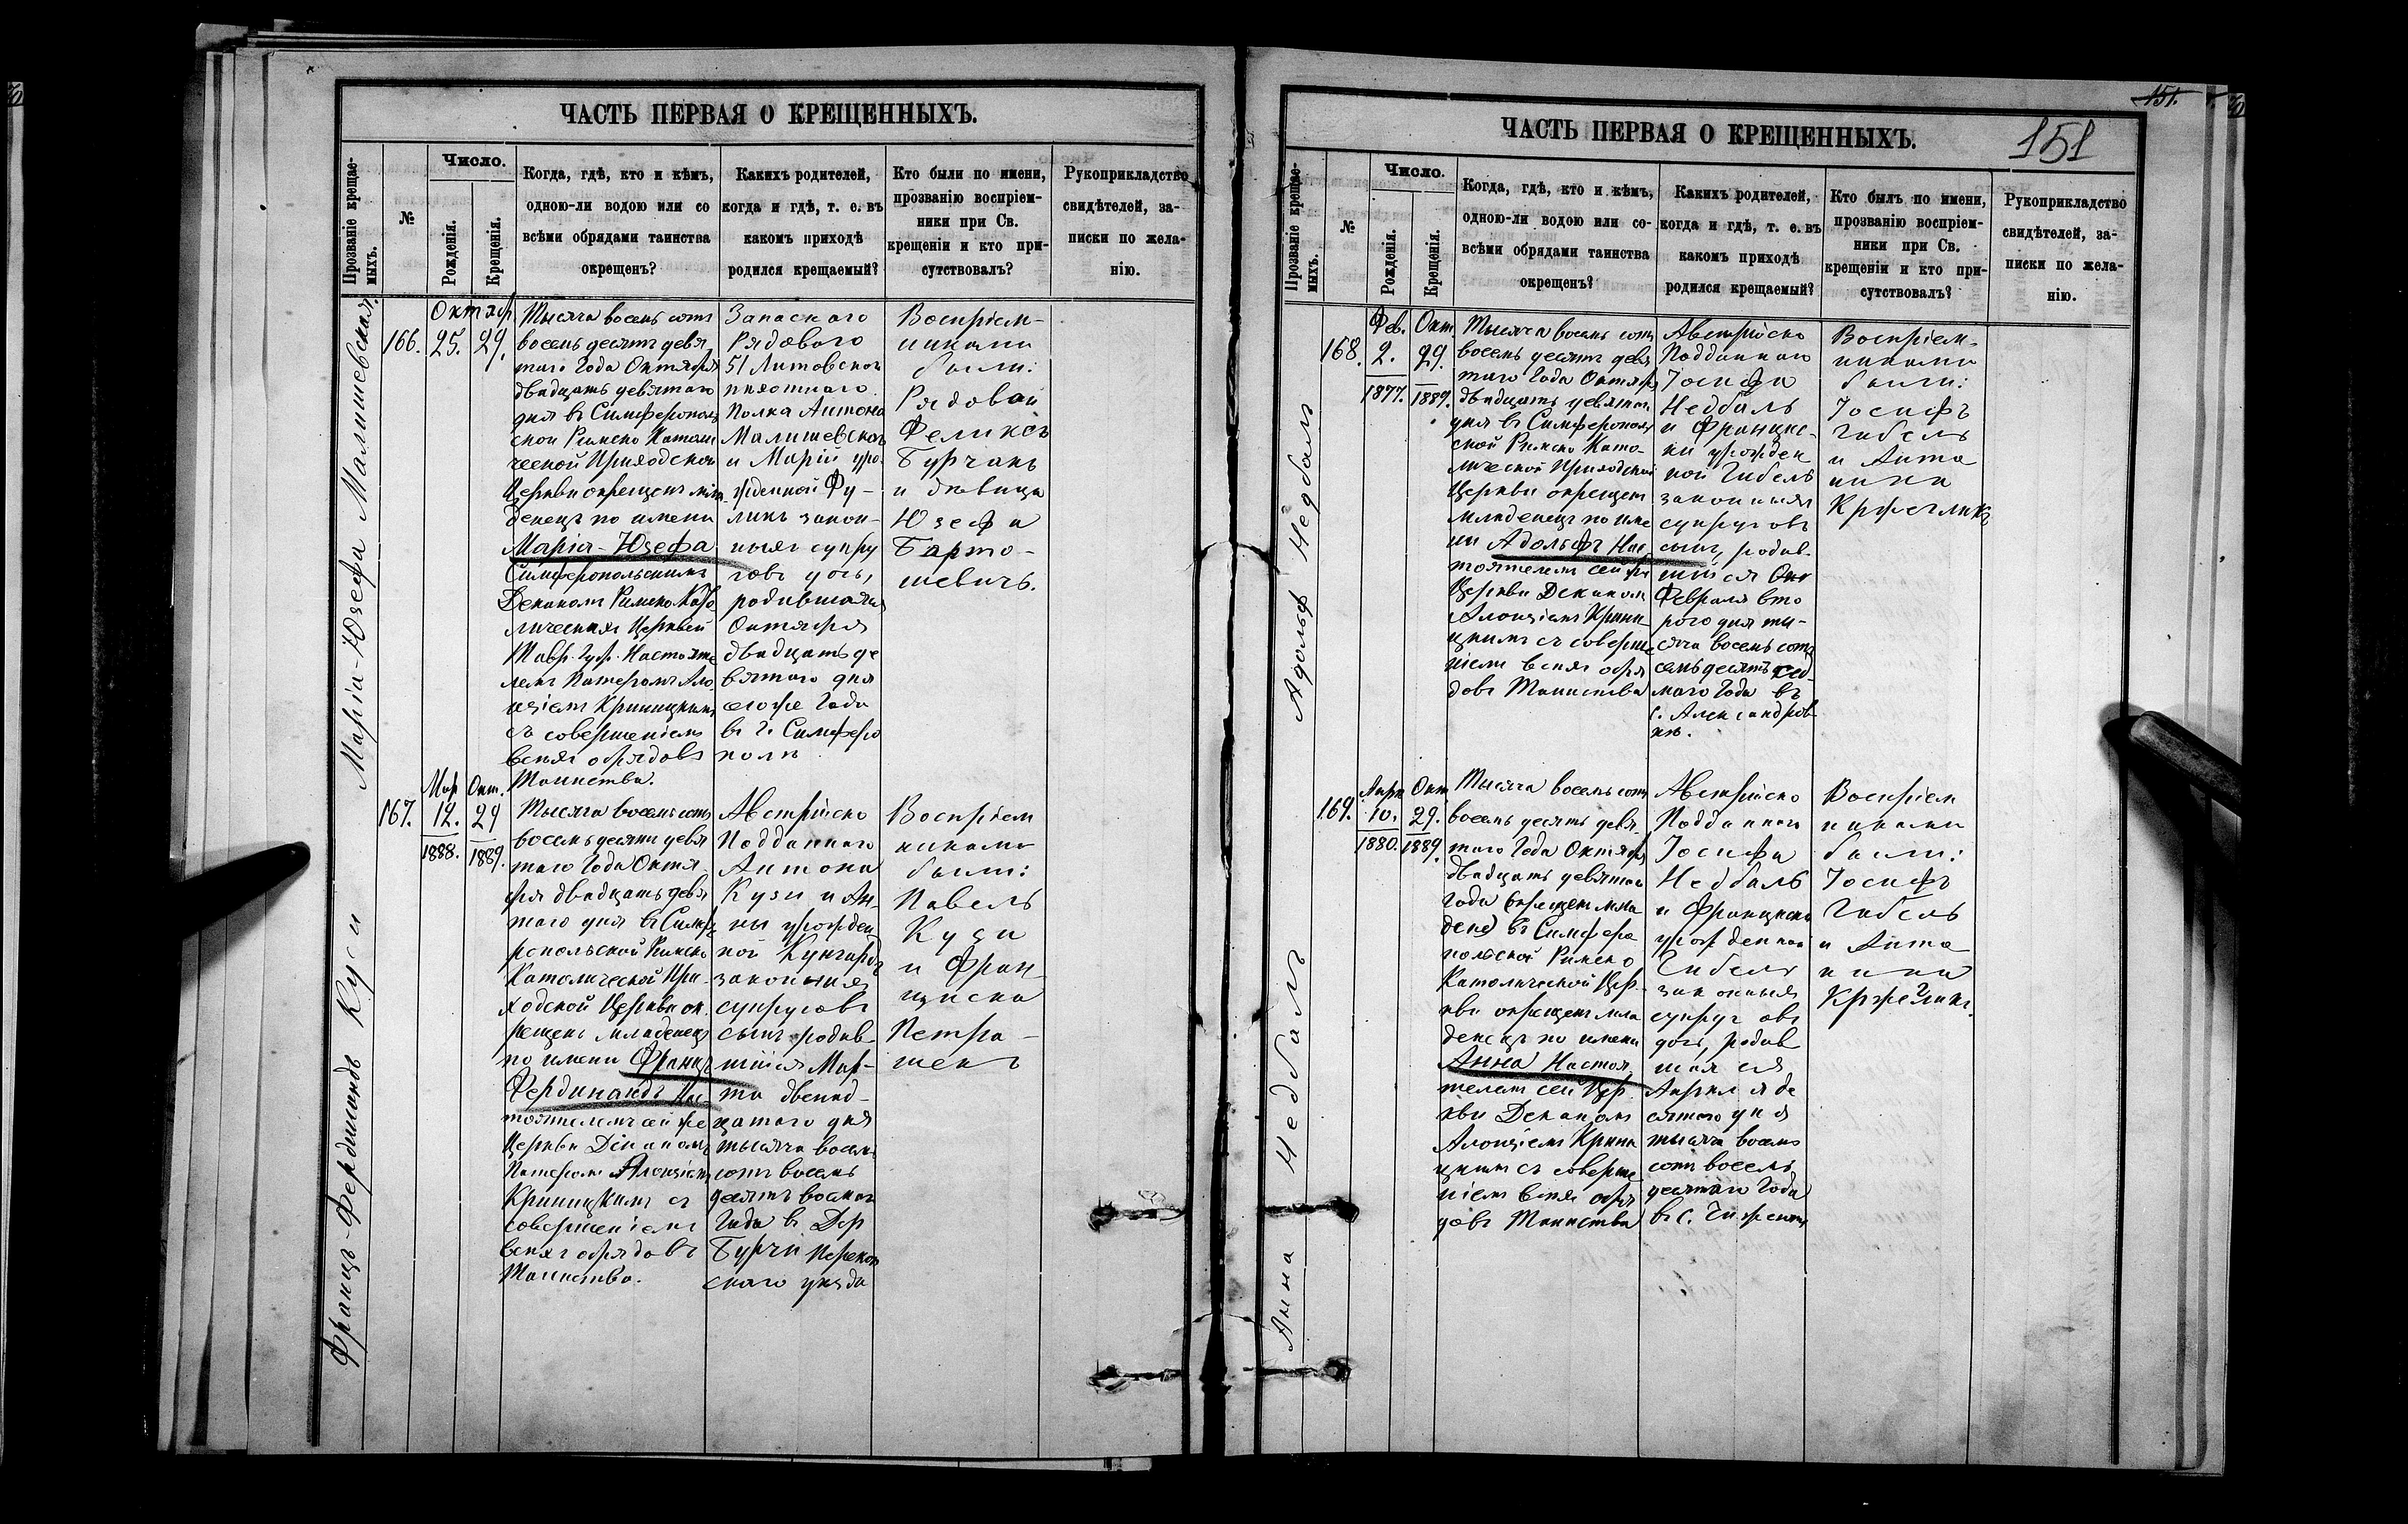 ЧАСТЬ ПЕРВАЯ О КРЕЩЕННЫХЪ.
Прозваніе крещае-
мыхъ.
№
Число.
Рожденія.
Крещенія.
Когда, гдѣ, кто и кѣмъ,
одною-ли водою или со
всѣми обрядами таинства
окрещенъ?
Какихъ родителей,
когда и гдѣ, т. е. въ
какомъ приходѣ
родился крещаемый?
Кто были по имени,
прозванію воспріем-
ники при Св.
крещеніи и кто при-
сутствовалъ?
Рукоприкладство
свидѣтелей, за-
писки по жела-
нію.
Марія-Юзефа Малишевская.
166.
Октяб.
25. 29.
Тысяча восемь сотъ
восемь десятъ девя
таго Года Октября
двадцать девятаго
дня въ Симферополь
ской Римско Католи
ческой Приходской
Церкви окрещенъ мла
денецъ по имени
Марія-Юзефа
Симферопольскимъ
Деканомъ Римско Като
лическихъ Церквей
Тавр. Губ. Настояте
лемъ Патеромъ Ало
изіемъ Криницкимъ
съ совершеніемъ
всѣхъ обрядовъ
Таинства.
Запаснаго
Рядоваго
51 Литовскаго
пѣхотнаго
Полка Антона
Малишевскаго
и Маріи уро
жденной Фу-
ликъ закон-
ныхъ супру
говъ дочь,
родившаяся
Октября
двадцать де
вятаго дня
сегоже Года
въ г. Симферо
полѣ
Воспріем-
никами
были:
Рядовой
Феликсъ
Бурчакъ
и дѣвица
Юзефа
Барто-
шевичъ.
Францъ-Фердинандъ Куси
167.
Мар. Окт.
12. 29
1888. 1889.
Тысяча восемь сотъ
восемь десятъ девя
таго Года Октя
бря двадцать девя
таго дня въ Симфе
ропольской Римско
Католической При
ходской Церкви ок
рещенъ младенецъ
по имени Францъ
Фердинандъ На
стоятелемъ сей же
Церкви Деканомъ
Патеромъ Алоизіемъ
Криницкимъ съ
совершеніемъ
всѣхъ обрядовъ
Таинства.
Австрійско
Подданнаго
Антона
Кузи и Ан-
ны урожден
ной
законныхъ
супруговъ
сынъ родив
шійся Мар-
та двенад-
цатаго дня
тысяча восемь
сотъ восемь
десятъ восьмаго
Года въ Дер
Бурчи Перекоп
скаго уѣзда
Воспріем
никами
были:
Павелъ
Кузи
и Фран-
циска
Петра-
шекъ
ЧАСТЬ ПЕРВАЯ О КРЕЩЕННЫХЪ.
151.
151
Прозваніе крещае-
мыхъ.
№
Число.
Рожденія.
Крещенія.
Когда, гдѣ, кто и кѣмъ,
одною-ли водою или со-
всѣми обрядами таинства
окрещенъ?
Какихъ родителей,
когда и гдѣ, т. е. въ
какомъ приходѣ
родился крещаемый?
Кто былъ по имени,
прозванію воспріем-
ники при Св.
крещеніи и кто при-
сутствовалъ?
Рукоприкладство
свидѣтелей, за-
писки по жела-
нію.
Адольф Недбалъ
168.
Фев. Окт.
2. 29.
1877. 1889.
Тысяча восемь сотъ
восемь десятъ девя
таго Года Октября
двадцать девятаго
дня въ Симферополь
ской Римско Като-
лической Приходской
Церкви окрещенъ
младенецъ по име
ни Адольфъ Нас
тоятелемъ сей же
Церкви Деканомъ
Алоизіемъ Крини
цкимъ съ соверше
ніемъ всѣхъ обря
довъ Таинства
Австрійско
Подданнаго
Іосифа
Недбаль
и Францис-
ки урожден
ной Гибель
законныхъ
супруговъ
сынъ, родив-
шійся
Февраля вто
раго дня ты-
сяча восемь сотъ
семьдесятъ сед-
маго Года въ
с. Александров
кѣ.
Воспріем-
никами
были:
Іосифъ
Гибель
и Анто
нина
Анна Недбалъ
169.
Апрѣ Окт.
10. 29.
1880. 1889.
Тысяча восемь сотъ
восемь десятъ девя
таго Года Октября
двадцать девятаго
Года окрещенъ мла
денец въ Симферо
польской Римско
Католической Цер-
кви окрещенъ мла
денецъ по имени
Анна Настоя
телемъ сей Цер
кви Деканомъ
Алоизіемъ Крини
цкимъ съ соверше
ніемъ всѣхъ обря
довъ Таинства
Австрійско
Подданнаго
Іосифа
Недбаль
и Франциски
урожденной
Гибель
законныхъ
супруговъ
дочь, родив
шаяся
Апрѣля де
сятаго дня
тысяча восемь
сотъ восемь
десятаго Года
въ с.
Воспріем
никами
были:
Іосифъ
Гибель
и Анто
нина